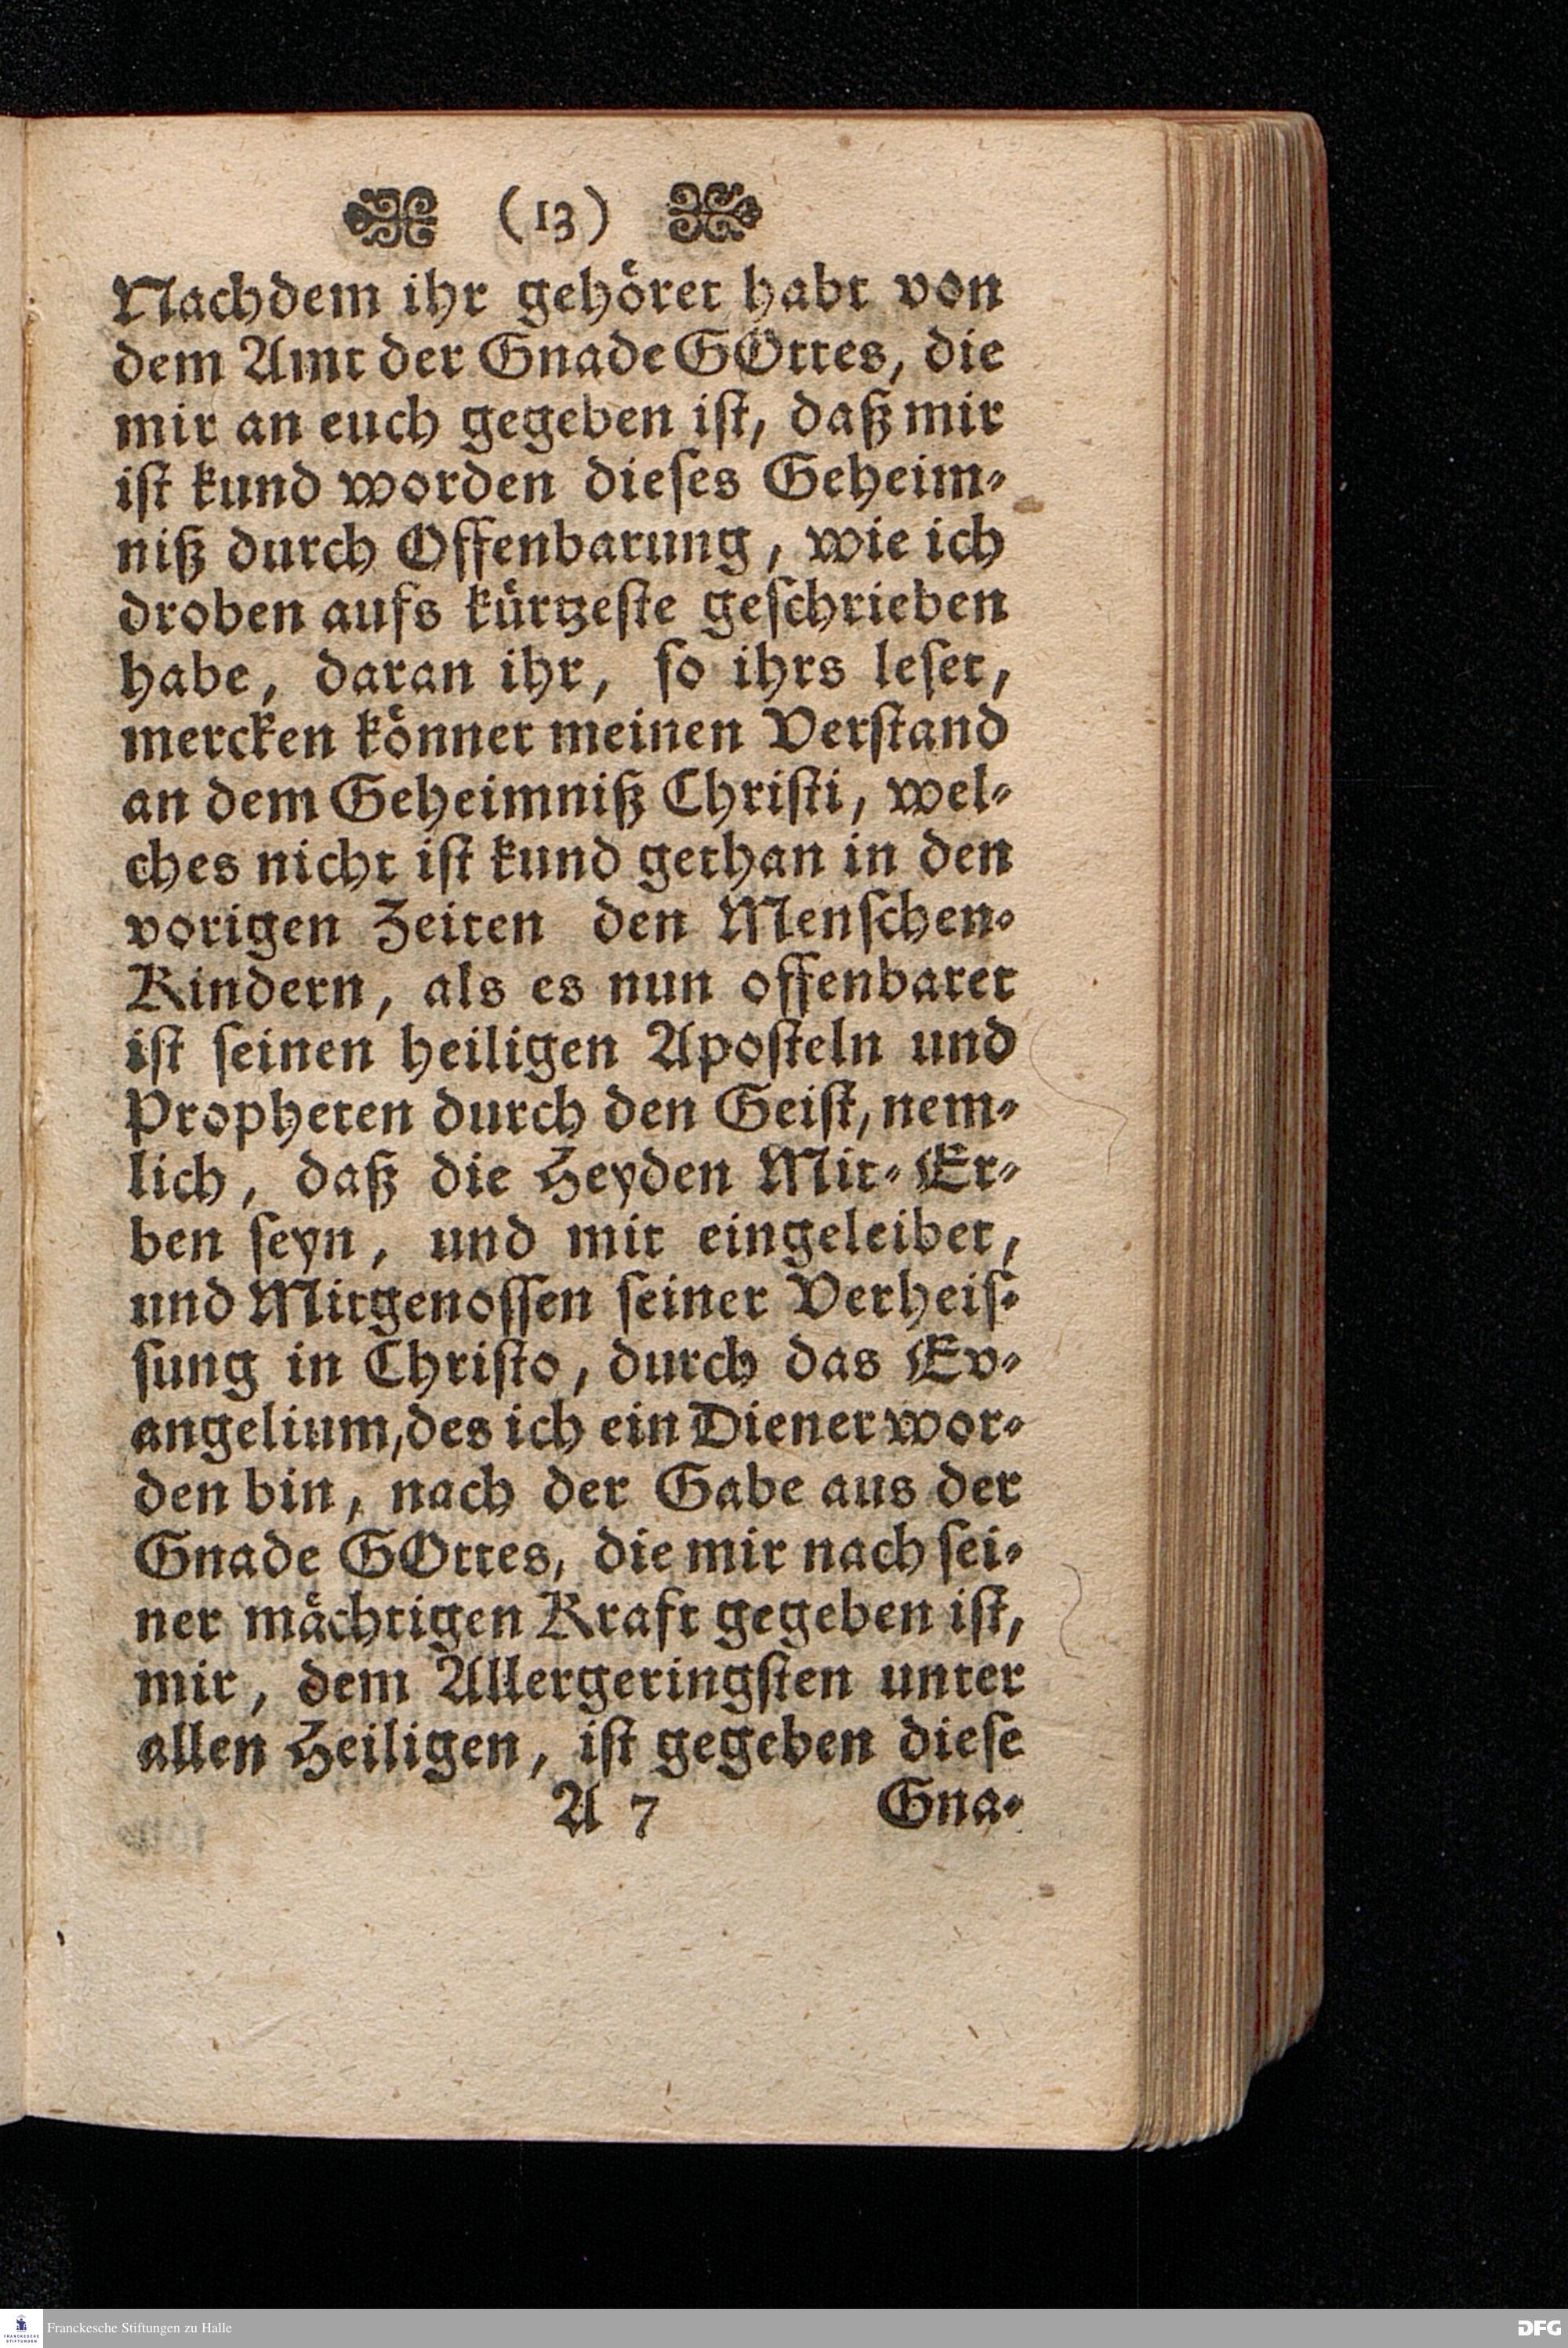 (13)
Nachdem ihr gehöret habt von
dem Amt der Gnade GOttes, die
mir an euch gegeben ist, daß mir
ist kund worden dieses Geheim-
niß durch Offenbarung, wie ich
droben aufs kürtzeste geschrieben
habe, daran ihr, so ihrs leset,
mercken könnet meinen Verstand
an dem Geheimniß Christi, wel-
ches nicht ist kund gethan in den
vorigen Zeiten den Menschen-
Kindern, als es nun offenbaret
ist seinen heiligen Aposteln und
Propheten durch den Geist, nem-
lich, daß die Heyden Mit-Er-
ben seyn, und mit eingeleibet,
und Mitgenossen seiner Verheis-
sung in Christo, durch das Ev-
angelium, des ich ein Diener wor-
den bin, nach der Gabe aus der
Gnade GOttes, die mir nach sei-
ner mächtigen Kraft gegeben ist,
mir, dem Allergeringsten unter
allen Heiligen, ist gegeben diese
A 7 Gna-
FRANCKESCHE STIFTUNGEN
Franckesche Stiftungen zu Halle
DFG